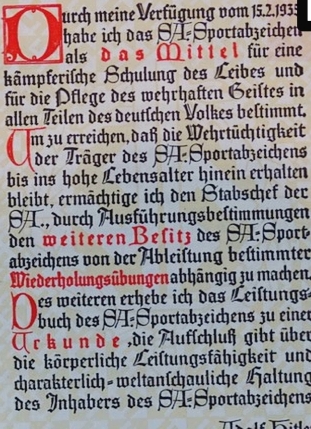 Durch meine Verfügung vom 15.2.1935
habe ich das SA-Sportabzeichen
als das Mittel für eine
kämpferische Schulung des Leibes und
für die Pflege des wehrhaften Geistes in
allen Teilen des deutschen Volkes bestimmt.
Um zu erreichen, daß die Wehrtüchtigkeit
der Träger des SA-Sportabzeichens
bis ins hohe Lebensalter hinein erhalten
bleibt, ermächtige ich den Stabschef der
SA., durch Ausführungsbestimmungen
den weiteren Besitz des SA-Sport-
abzeichens von der Ableistung bestimmter
Wiederholungsübungen abhängig zu machen.
Des weiteren erhebe ich das Leistungs-
buch des SA-Sportabzeichens zu einer
Urkunde, die Aufschluß gibt über
die körperliche Leistungsfähigkeit und
charakterlich-weltanschauliche Haltung
des Inhabers des SA-Sportabzeichens
Adolf Hitler